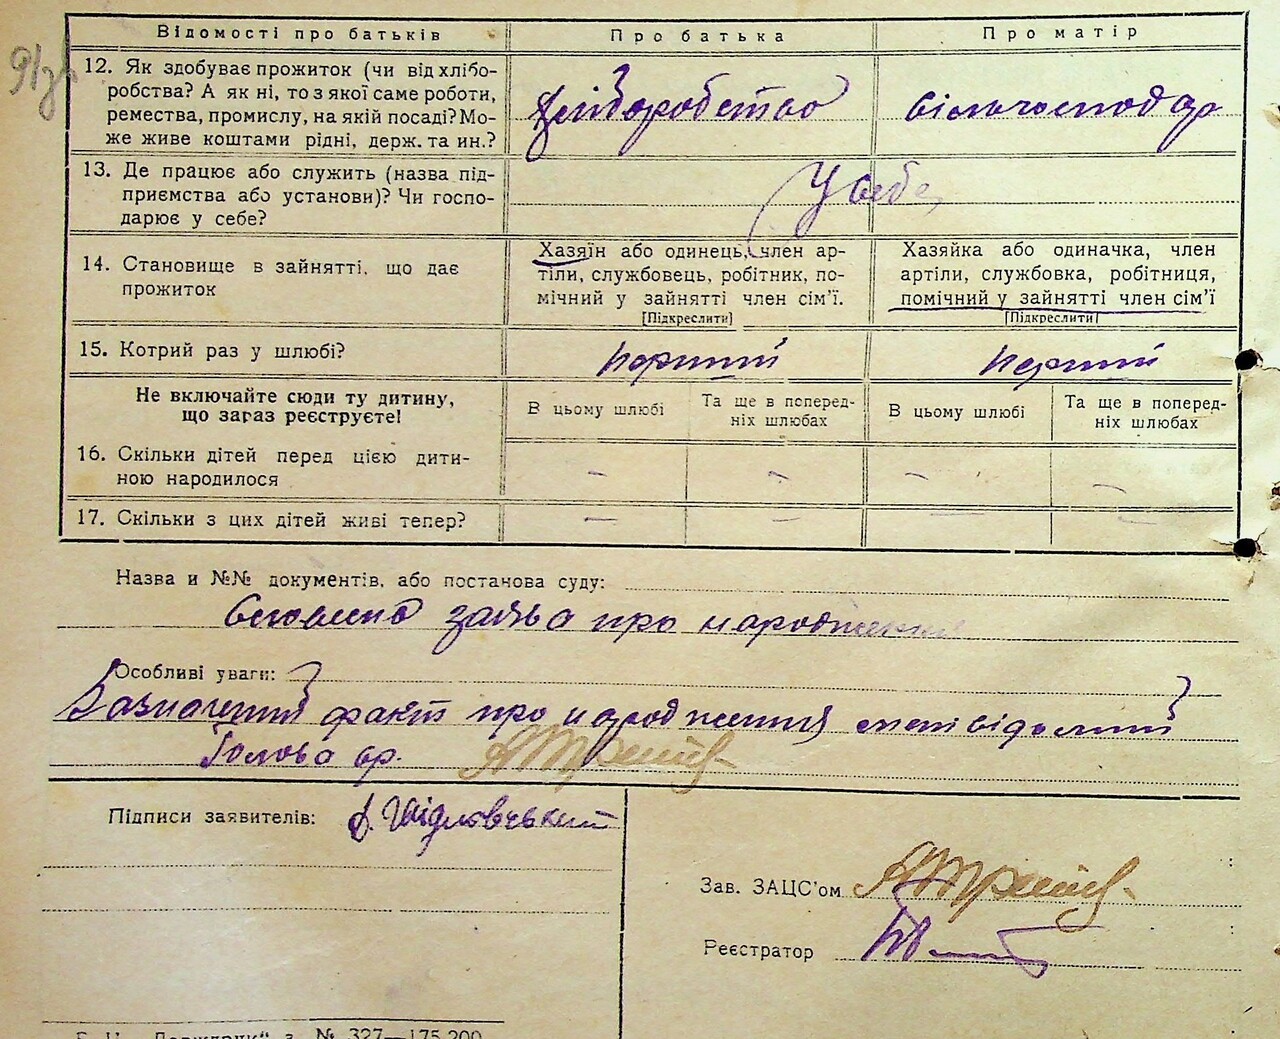 Відомості про батьків Про батька Про матір
12. Як здобуває прожиток (чи від хлібо-
робства? А як ні, то з якої саме роботи,
ремества, промислу, на якій посаді? Мо-
же живе коштами рідні, держ. та ин.?
хліборобство сільгосподар
13. Де працює або служить (назва під-
приємства або установи)? Чи госпо-
дарює у себе?
У себе
14. Становище в зайнятті, що дає
прожиток
Хазяїн або одинець, член ар-
тіли, службовець, робітник, по-
мічний у зайнятті член сім'ї.
[Підкреслити]
Хазяйка або одиначка, член
артіли, службовка, робітниця,
помічний у зайнятті член сім'ї
[Підкреслити]
15. Котрий раз у шлюбі? перший перший
Не включайте сюди ту дитину,
що зараз реєструєте!
В цьому шлюбі
Та ще в поперед-
ніх шлюбах
В цьому шлюбі
Та ще в поперед-
ніх шлюбах
16. Скільки дітей перед цією дити-
ною народилося
– – – –
17. Скільки з цих дітей живі тепер? – – – –
Назва и №№ документів, або постанова суду:
заява про народження
Особливі уваги:
Зазначений факт про народження мені відомий
Голова
Підписи заявителів:
Зав. ЗАЦС'ом
Реєстратор
№ 327—175.200